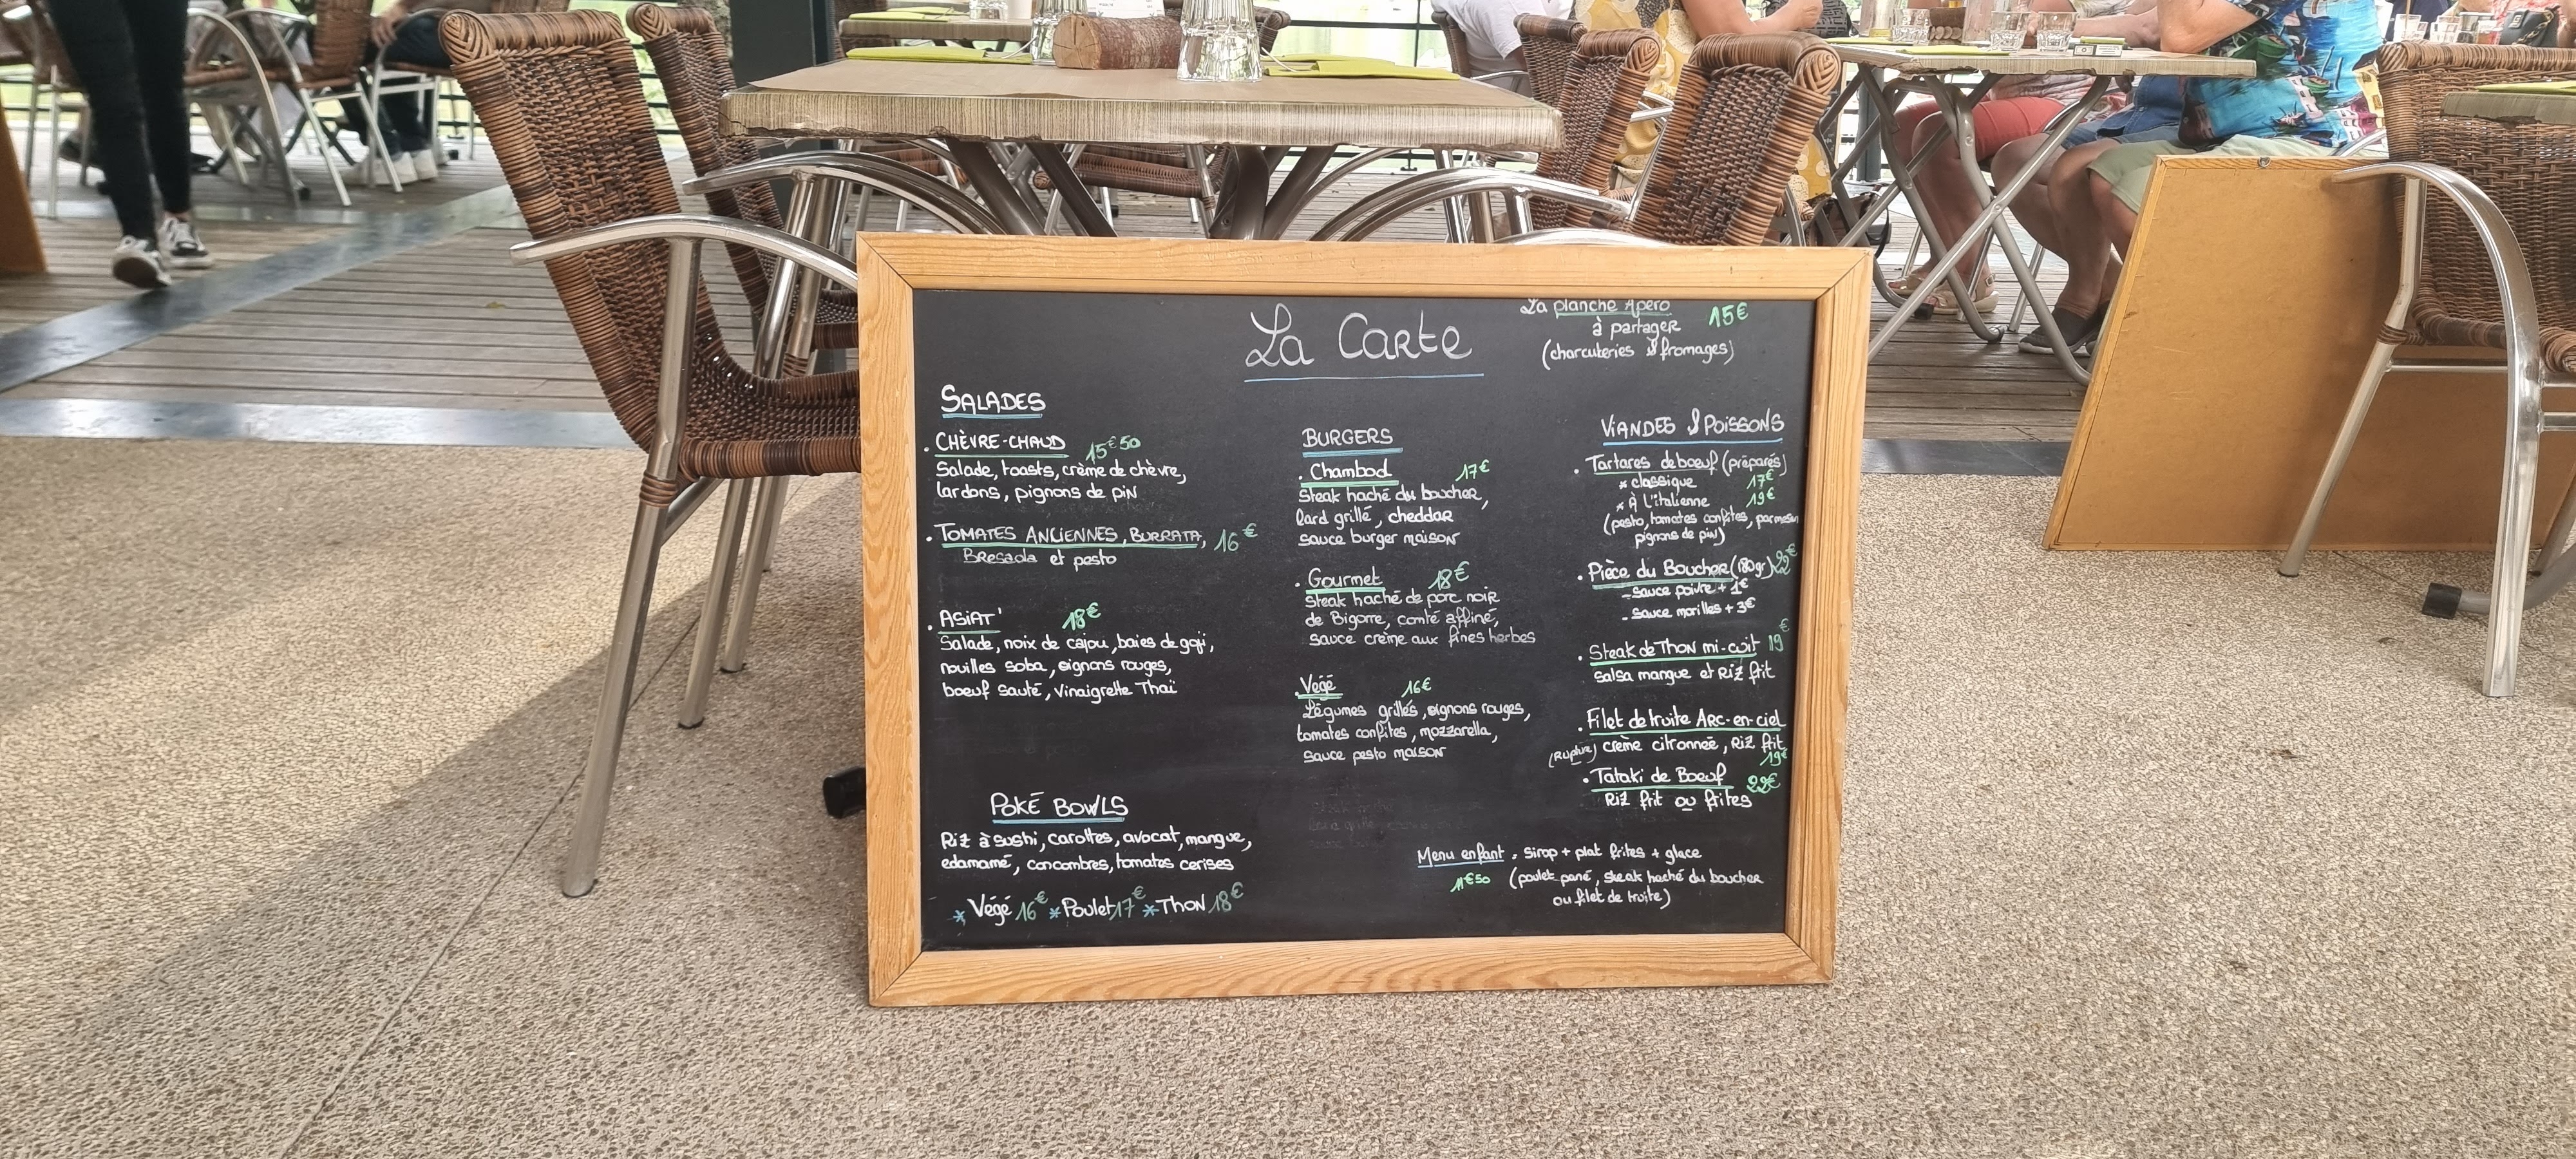 La Carte
La planche Apéro 15€
à partager
(charcuteries & fromages)
SALADES
. CHÈVRE-CHAUD 15€50
Salade, toasts, crème de chèvre,
lardons, pignons de pin
. TOMATES ANCIENNES, BURRATA, 16€
Bresaola et pesto
. ASIAT' 18€
Salade, noix de cajou, baies de goji,
nouilles soba, oignons rouges,
boeuf sauté, vinaigrette Thaï
POKÉ BOWLS
Riz à sushi, carottes, avocat, mangue,
edamamé, concombres, tomates cerises
* Végé 16€ * Poulet 17€ * Thon 18€
BURGERS
. Chambod 17€
Steak haché du boucher,
lard grillé, cheddar
sauce burger maison
. Gourmet 18€
Steak haché de porc noir
de Bigorre, comté affiné,
sauce crème aux fines herbes
. Végé 16€
Légumes grillés, oignons rouges,
tomates confites, mozzarella,
sauce pesto maison
VIANDES & POISSONS
. Tartares de boeuf (préparés)
* classique 17€
* À l'italienne 19€
(pesto, tomates confites, parmesan
pignons de pin)
. Pièce du Boucher (180gr) 22€
- sauce poivre + 1€
- sauce morilles + 3€
. Steak de Thon mi-cuit 19€
salsa mangue et Riz frit
. Filet de truite Arc-en-ciel
(Rupture) crème citronnée, Riz frit
19€
. Tataki de Boeuf 22€
Riz frit ou frites
Menu enfant : sirop + plat frites + glace
11€50 (poulet pané, steak haché du boucher
ou filet de truite)